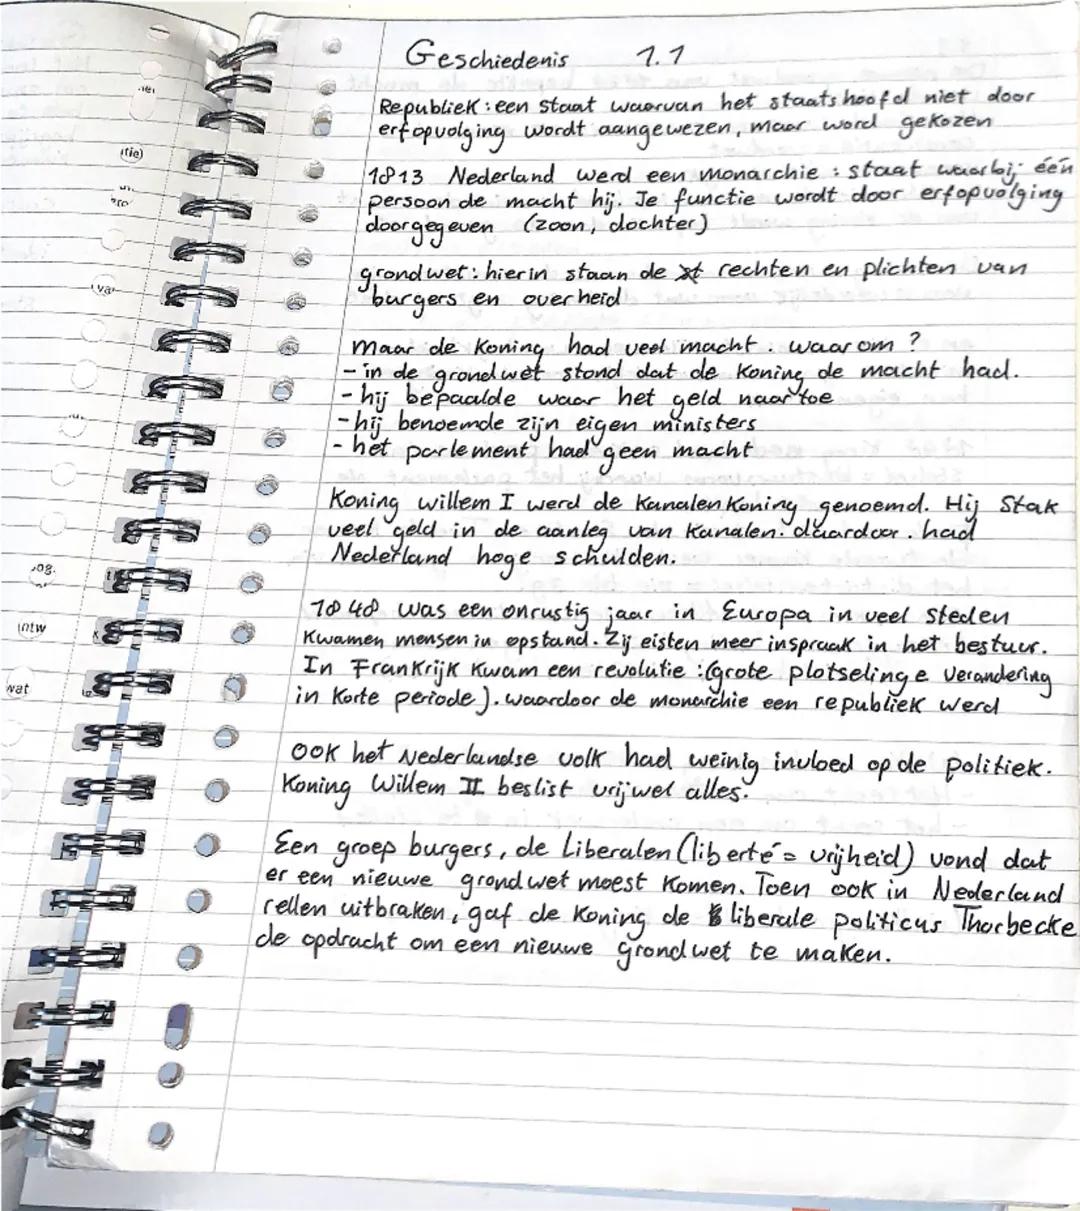 Geschiedenis 1.1
Republiek: een staat waarvan het staatshoofd niet door
erfopvolging wordt aangewezen, maar word gekozen
1813 Nederland werd een monarchie: staat waarbij één
persoon de macht hij. Je functie wordt door erfopvolging
doorgegeven (zoon, dochter)
grondwet: hierin staan de rechten en plichten van
burgers en overheid
maar de Koning had veel macht. waarom?
- in de grondwet stond dat de Koning de macht had.
- hij bepaalde waar het geld naar toe
- hij benoemde zijn eigen ministers
- het parlement had geen macht
Koning willem I werd de Kanalen Koning genoemd. Hij Stak
veel geld in de aanleg van Kanalen. daardoor. had
Nederland hoge schulden.
1848 was een onrustig jaar in Europa in veel steden
Kwamen mensen in opstand. Zij eisten meer inspraak in het bestuur.
In Frankrijk Kwam een revolutie :(grote plotselinge verandering
in Korte periode). waardoor de monarchie een republiek werd
OOK het Nederlandse volk had weinig invloed op de politiek.
Koning Willem II beslist vrijwel alles.
Een groep burgers, de Liberalen (liberté = vrijheid) vond dat
er een nieuwe grondwet moest Komen. Toen ook in Nederland
rellen uitbraken, gaf de Koning de liberale politicus Thorbecke
de opdracht om een nieuwe grondwet te maken.